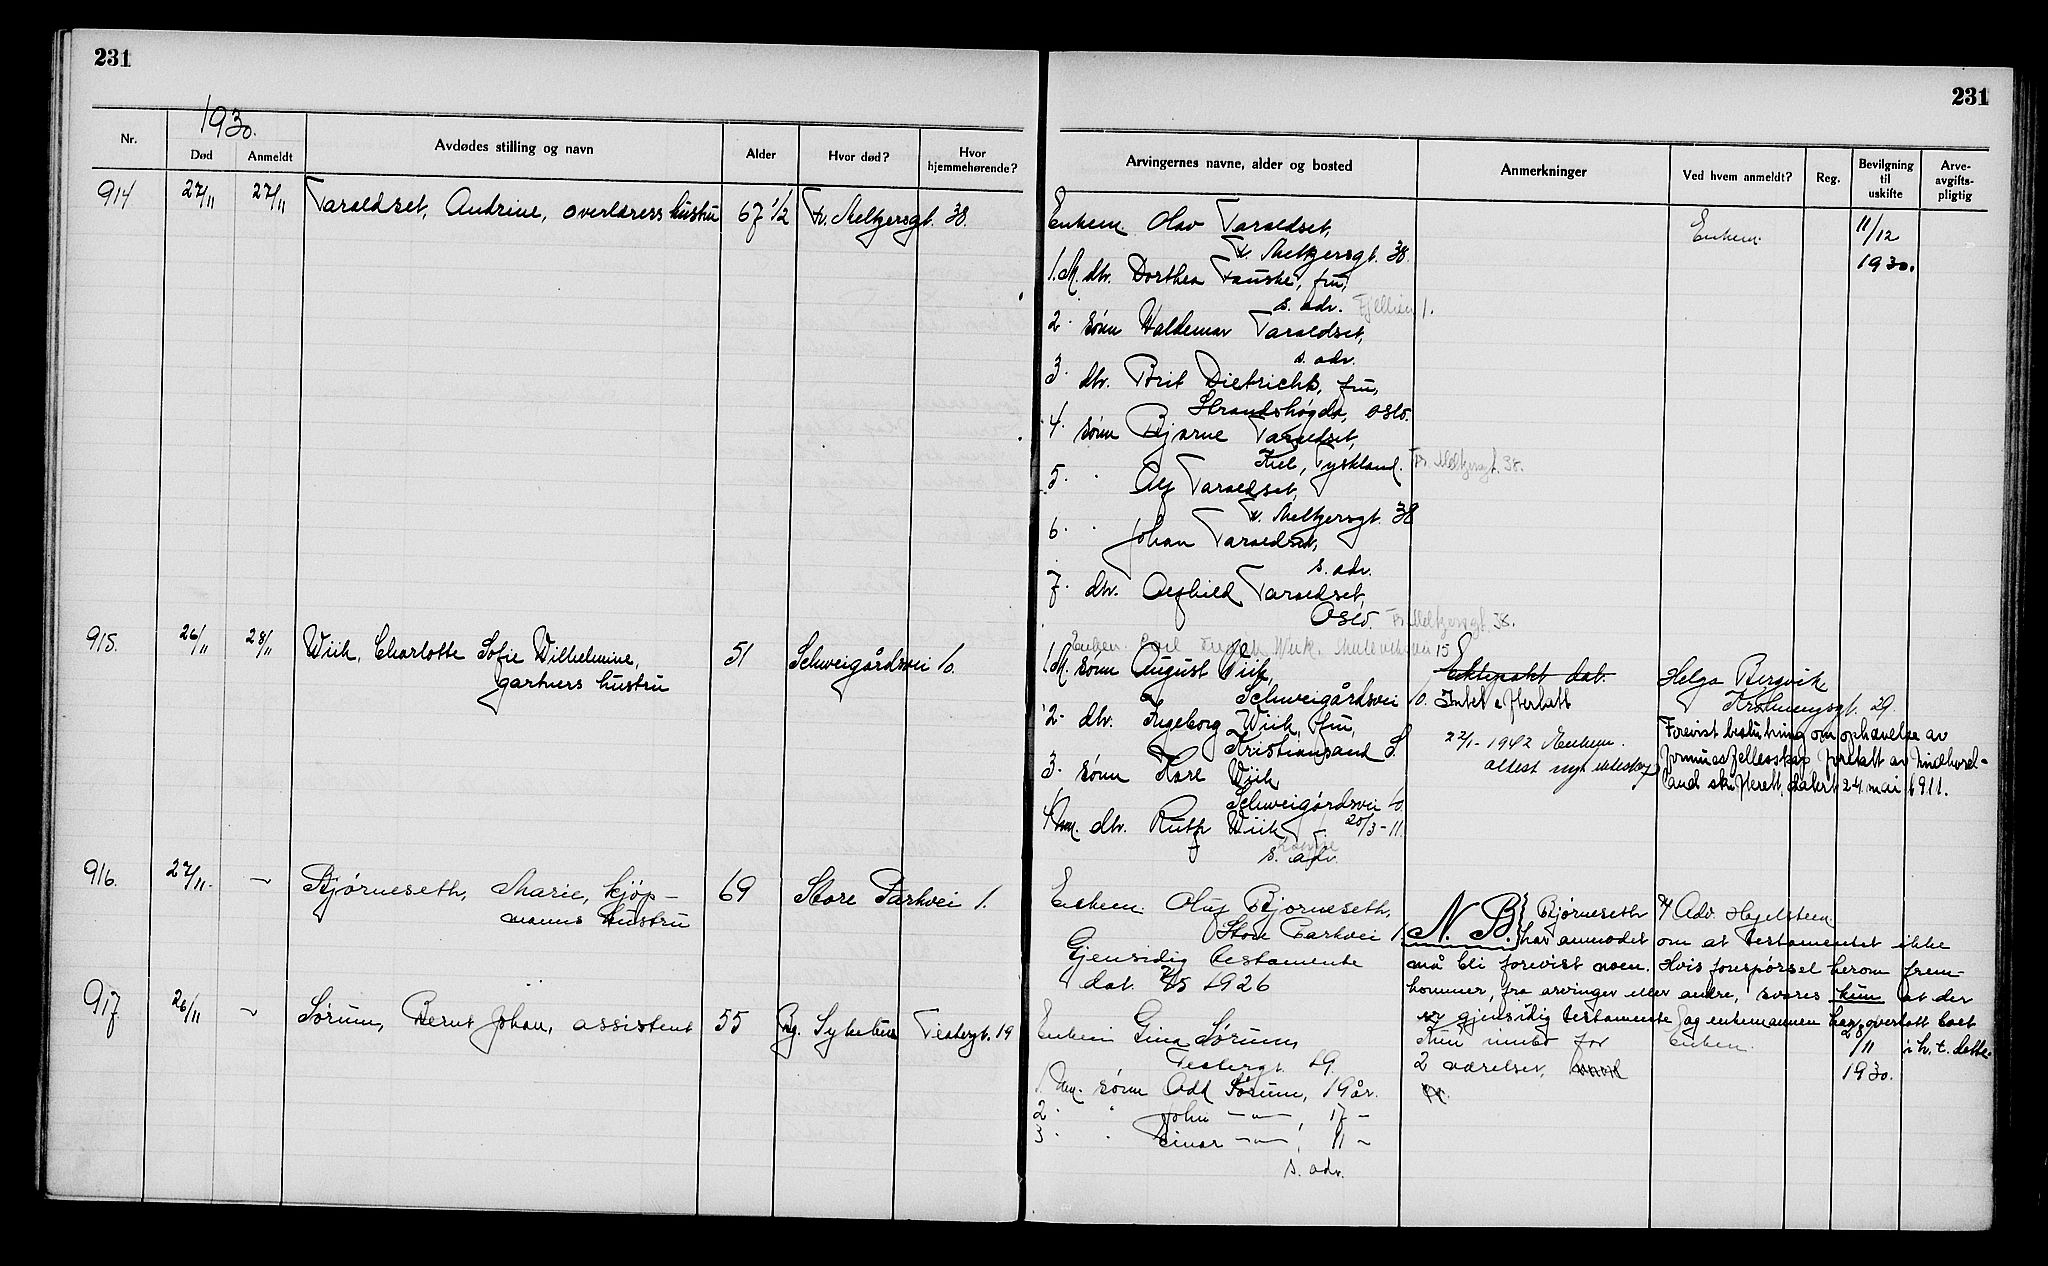 231
231
1930.
Nr.
Død
Anmeldt
Avdødes stilling og navn
Alder
Hvor død?
Hvor hjemmehørende?
Arvingernes navne, alder og bosted
Anmerkninger
Ved hvem anmeldt?
Reg.
Bevilgning til uskifte
Arve-avgifts-pligtig
914 27/11 27/11 Taraldset, Andrine, overlærers hustru 67 1/2 Fr. Meltzersgt. 38.
Enkem. Olav Taraldset, Enkem. 11/12
Fr. Meltzersgt. 38. 1930.
1. M. dtr. Dorthea Fauske, fru,
s. adr. Fjellien 1.
2. sønn Waldemar Taraldset,
s. adr.
3. dtr. Brit Dietrichs, fru,
Strandshøgda, Oslo.
4. sønn Bjarne Taraldset,
Kiel, Tyskland. Fr. Meltzersgt. 38.
5. " Alf Taraldset,
Fr. Meltzersgt. 38
6. " Johan Taraldset,
s. adr.
7. dtr. Alfhild Taraldset,
Oslo. Fr. Meltzersgt. 38.
915. 26/11 28/11 Wiik, Charlotte Sofie Wilhelmine, 51 Schweigårdsvei 10.
gartners hustru
Enkem. Carl Wiik. 15
1. M. sønn August Wiik, Ektepakt dat. Helga Bergvik
Schweigårdsvei 10. Intet efterlatt Krohnengsgt. 29.
2. dtr. Ingeborg Wiik, fru,
Kristiansand S. 22/1-1942 Enkem.
attest nytt ekteskap
Forevist beslutning om ophævelse av
formuesfellesskap forfatt av Nordhord-
land skifterett, datert 24 mai 1911.
3. sønn Kåre Wiik
Schweigårdsvei 10.
4. Um. dtr. Ruth Wiik, f. 20/3-11.
s. adr.
916. 27/11. — Bjørneseth, Marie, kjøp- 69 Store Parkvei 1.
manns hustru
Enkem. Oluf Bjørneseth,
Store Parkvei 1.
Gjensidig testamente
dat. 1926
N.B. Bjørneseth v/ Adv. Hagelsteen
har anmodet om at testamentet ikke
må bli forevist noen. Hvis forespørsel herom frem-
kommer, fra arvinger eller andre, svares kun at der
er gjensidig testamente og enkemannen har overtatt boet
i h. t. dette.
917. 26/11 — Sørum, Bernt Johan, assistent 55 Bg. Sykehus Teatergt. 19
Enkem Gina Sørum, Kun innbo for Enken. 28/11
Teatergt. 19. 2 værelser, 1930.
1. Um. sønn Odd Sørum, 19 år.
2. " John —"—, 17 —
3. " Einar —"—, 11 —
s. adr.